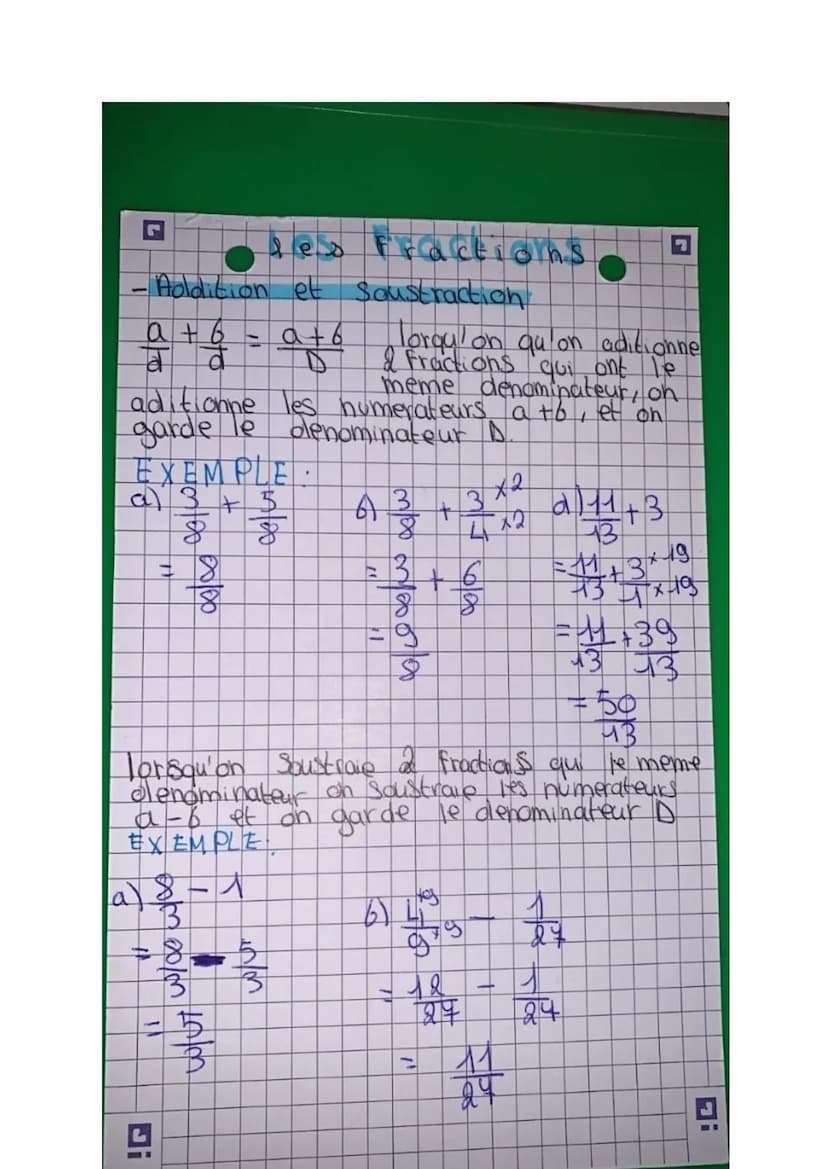 les Fractions
- Addition et Soustraction
a/d + b/d = a+b/D lorqu'on qu'on aditionne
2 fractions qui ont le
meme denominateur, on
aditionne les numerateurs a+b, et on
garde le denominateur D.
EXEMPLE :
a) 3/8 + 5/8
= 8/8
b) 3/8 + 3/4 ×2/×2
= 3/8 + 6/8
= 9/8
d) 11/13 + 3
= 11/13 + 3/1 ×19/×19
= 11/13 + 39/13
= 50/13
lorsqu'on soustraie 2 fractions qui le meme
denominateur on soustraie les numerateurs
a-b et on garde le denominateur D
EXEMPLE:
a) 8/3 - 1
= 8/3 - 5/3
= 5/3
b) 4/9 - 1/27
= 12/27 - 1/27
= 11/27